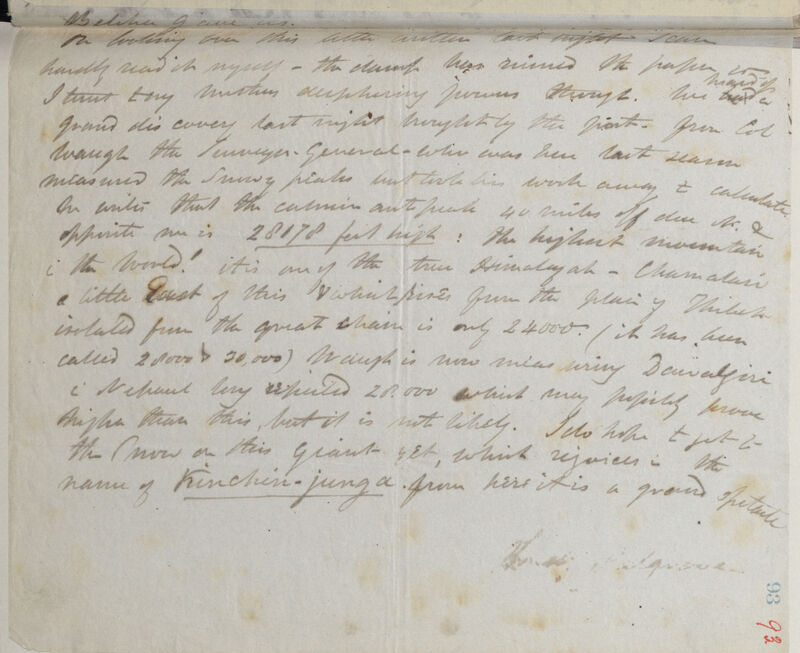 Belcher gave us.
On looking over this letter written last night I can
hardly read it myself – the damp has ruined the paper
I trust to my mothers decyphering powers though. We heard of a
grand discovery last night brought by the post – from Col
Waugh the Surveyor-General – who was here last season
measured the Snowy peaks but took his work away to calculate
he writes that the culminant peak 40 miles off due N. &
opposite me is 28178 feet high: the highest mountain
i the World! it is one of the true Himalayah – Chamalari
a little East of this & which rises from the plain of Thibet
isolated from the great chain is only 24000. (it has been
called 28000 & 30,000) Waugh is now measuring Dawalgiri
i Nepaul long reputed 28.000 which may possibly prove
higher than this, but it is not likely. I do hope to get to
the Snow on this Giant yet, which rejoices i the
name of Kinchin-junga. from here it is a grand spectacle
93
93